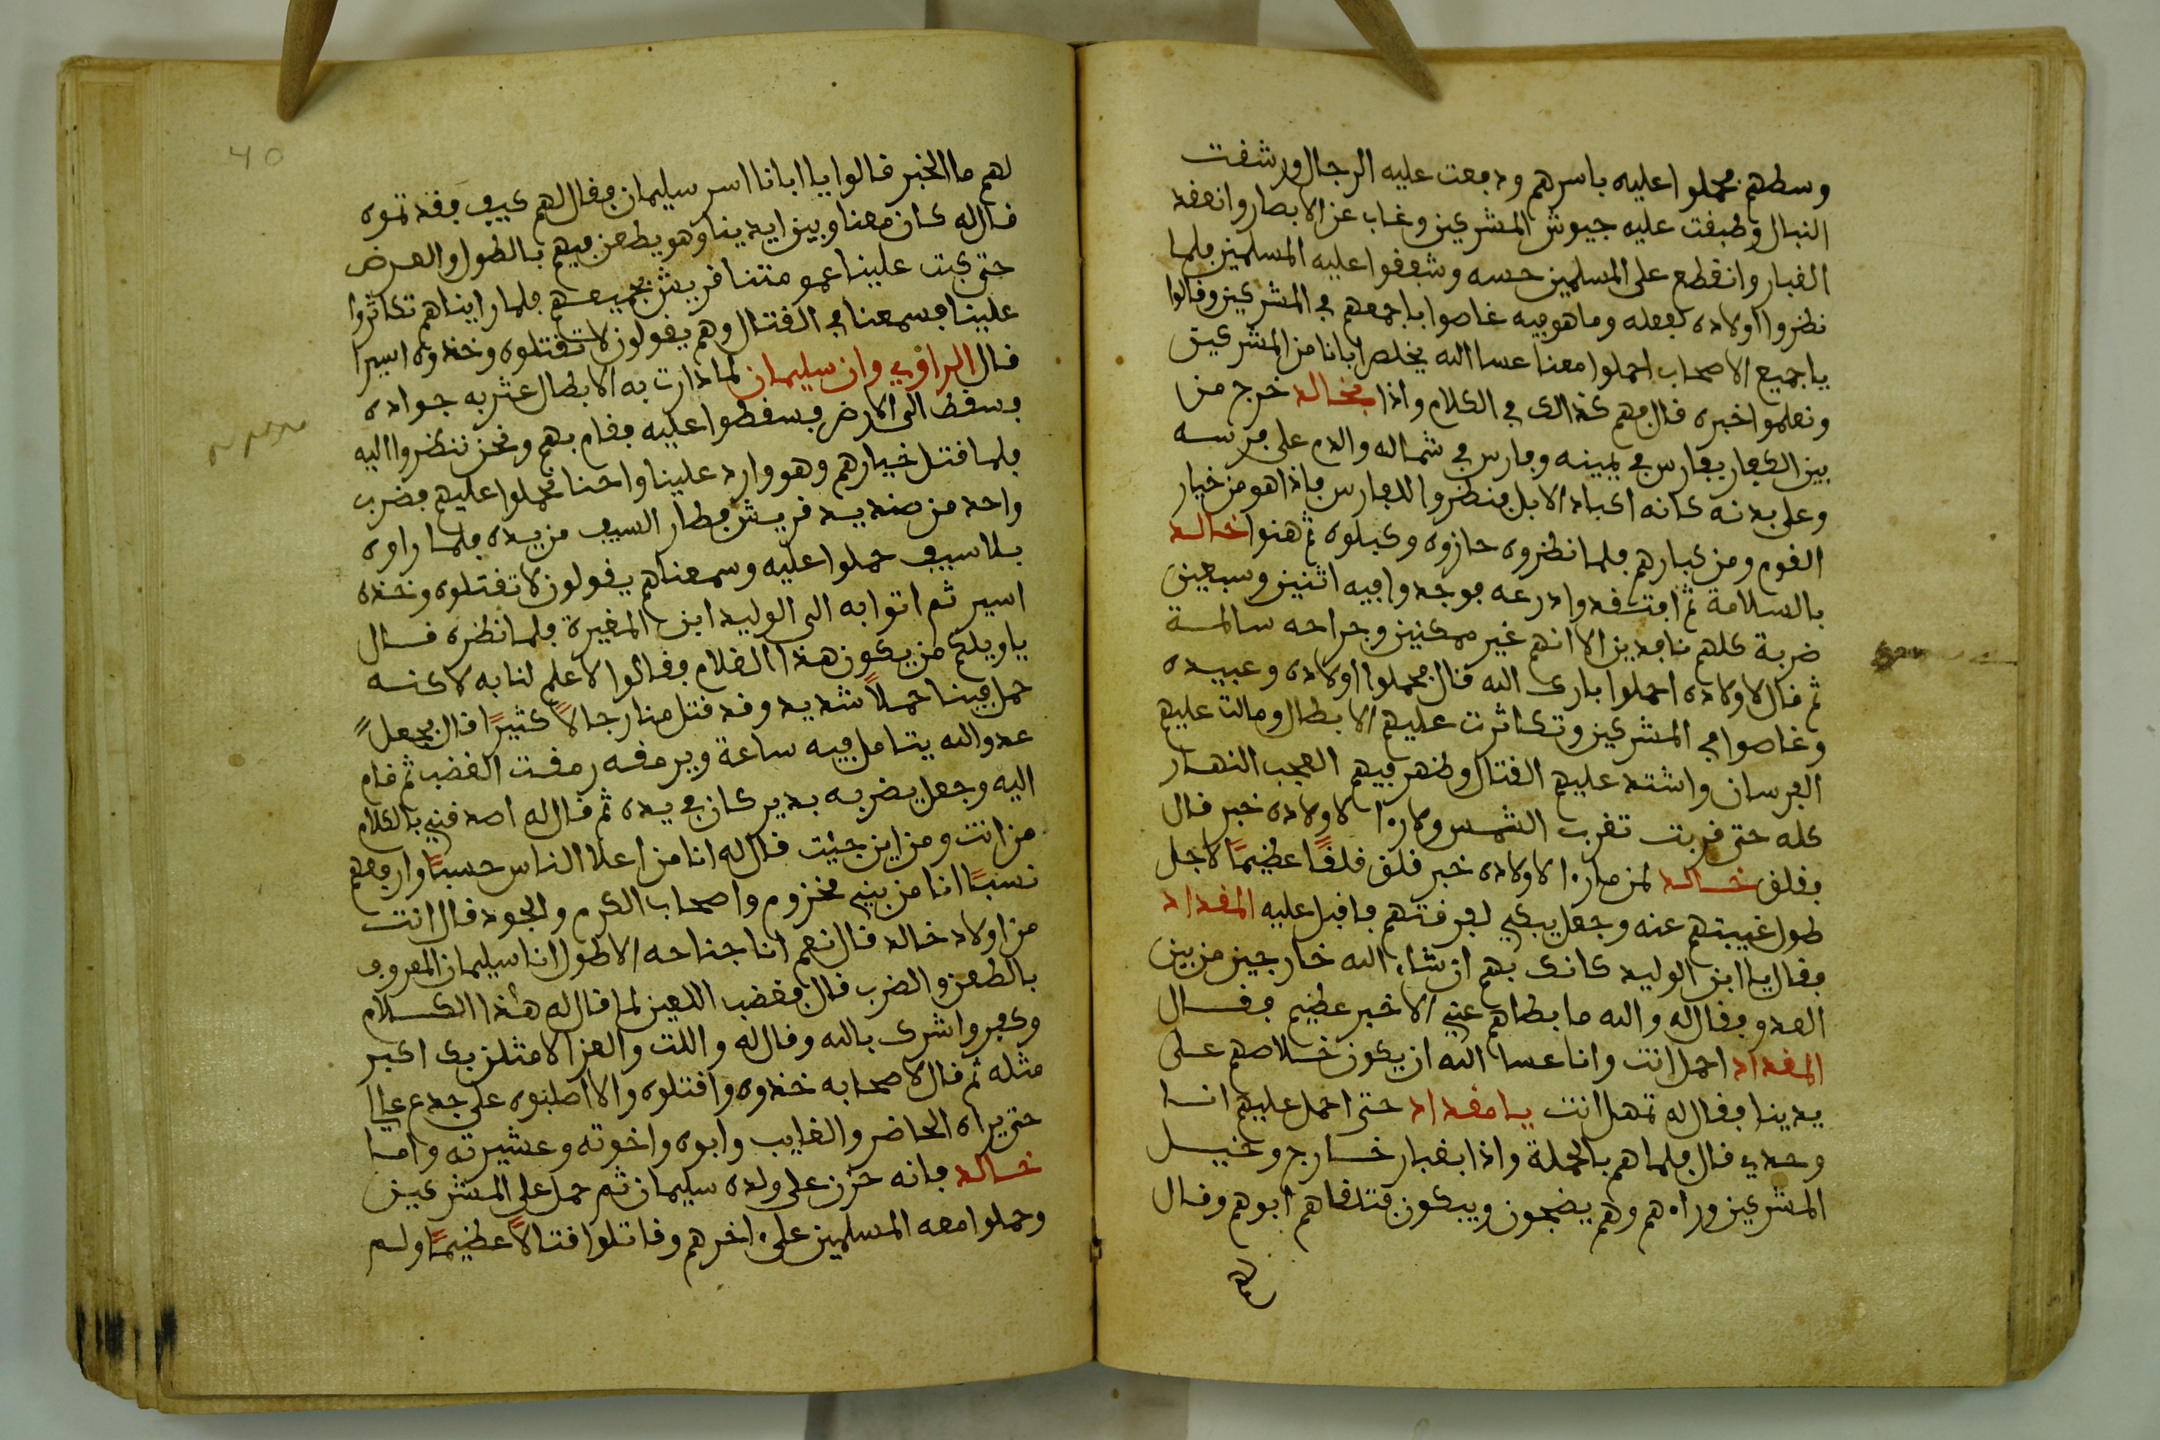 وسطهم فحملوا عليه باسرهم ودفعت عليه الرجال ورشفت
النبال وطبقت عليه جيوش المشركين وغاب عن الابصار وانعقد
الغبار وانقطع على المسلمين حسه وشفقوا عليه المسلمين فلما
نظروا اولاده لفعله وما هو فيه غاصوا باجمعهم في المشركين وقالوا
يا جميع الاصحاب احملوا معنا عسا الله يخلص ابانا من المشركين
ونعلموا خبره قال فهم كذالك في الكلام واذا بخالد خرج من
بين الكفار بفارس في يمينه وفارس في شماله والدم على فرسه
وعلى بدنه كانه اكباد الابل فنظروا للفارس فاذا هو من خيار
القوم ومن كبارهم فلما نظروه حازوه وكبلوه ثم هنوا خالد
بالسلامة ثم افتقدوا درعه فوجدوا فيه اثنين وسبعين
ضربة كلهم نافدين الا انهم غير ممكنين وجراحه سالمة
ثم قال لاولاده احملوا بارك الله قال فحملوا اولاده وعبيده
وغاصوا في المشركين وتكاثرت عليهم الابطال ومالت عليهم
الفرسان واشتد عليهم القتال وظهر فيهم العجب النهار
كله حتى قربت تغرب الشمس ولا را لاولاده خبر قال
فقلق خالد لمن ما را لاولاده خبر قلق قلقًا عظيمًا لاجل
طول غيبتهم عنه وجعل يبكي لفرقتهم فاقبل عليه المقداد
فقال يا ابن الوليد كانك بهم ان شاء الله خارجين من بين
العدو فقال له والله ما بطاهم عني الا خبر عظيم فقال
المقداد احمل انت وانا عسا الله ان يكون خلاصهم على
يدينا فقال له تمهل انت يا مقداد حتى احمل عليهم انا
وحدي قال فلما هم بالحملة واذا بغبار خارج وخيل
المشركين وراهم وهم يضجون ويبكون فتلقاهم ابوهم وقال
لهم
40
لهم ما الخبر قالوا يا ابانا اسر سليمان فقال لهم كيف فقدتموه
قال له كان معنا وبين ايدينا وهو يطعن فيهم بالطول والعرض
حتى كبت علينا عمومتنا قريش بجميعهم فلما رايناهم تكاثروا
علينا فسمعنا في القتال وهم يقولون لا تقتلوه وخذوه اسيرا
قال الراوي وان سليمان لما دارت به الابطال عثر به جواده
فسقط الى الارض فسقطوا عليه فقام بهم ونحن ننظروا اليه
فلما قتل خيارهم وهو وارد علينا واحنا فحملوا عليهم فضرب
واحد من صنديد قريش فطار السيف من يده فلما راوه
بلا سيف حملوا عليه وسمعناهم يقولون لا تقتلوه وخذه
اسير ثم اتوا به الى الوليد ابن المغيرة فلما نظره قال
يا ويلكم من يكون هذا الغلام فقالوا لا علم لنا به لاكنه
حمل فينا حملاً شديد وقد قتل منا رجالاً كثيرًا قال فجعل
عدو الله يتامل فيه ساعة ويرمقه رمقت الغضب ثم قام
اليه وجعل يضربه بدير كان في يده ثم قال له اصدقني بالكلام
من انت ومن اين جئت قال له انا من اعلا الناس حسبًا وارفعهم
نسبًا انا من بني مخزوم واصحاب الكرم والجود قال انت
من اولاد خالد قال نعم انا جناحه الاطول انا سليمان المعروف
بالطعن والضرب قال فغضب اللعين لما قال له هذا الكلام
وكفر واشرك بالله وقال له واللت والعزا لامثلن بك اكبر
مثله ثم قال لاصحابه خذوه واقتلوه والا اصلبوه على جدع عالي
حتى يراه الحاضر والغايب وابوه واخوته وعشيرته واما
خالد فانه حزن على ولده سليمان ثم حمل على المشركين
وحملوا معه المسلمين على اخرهم وقاتلوا قتالاً عظيمًا ولم